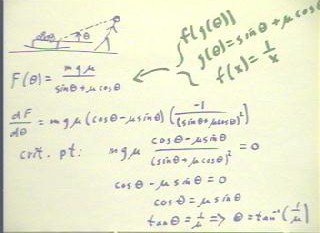 θ
f(g(θ))
g(θ) = sinθ + μ cosθ
f(x) = 1/x
F(θ) = mgμ / (sinθ + μ cosθ)
dF/dθ = mgμ (cosθ - μ sinθ) (-1/(sinθ + μcosθ)²)
crit. pt: mgμ (cosθ - μ sinθ)/(sinθ + μ cosθ)² = 0
cosθ - μ sinθ = 0
cosθ = μ sinθ
tanθ = 1/μ => θ = tan⁻¹(1/μ)